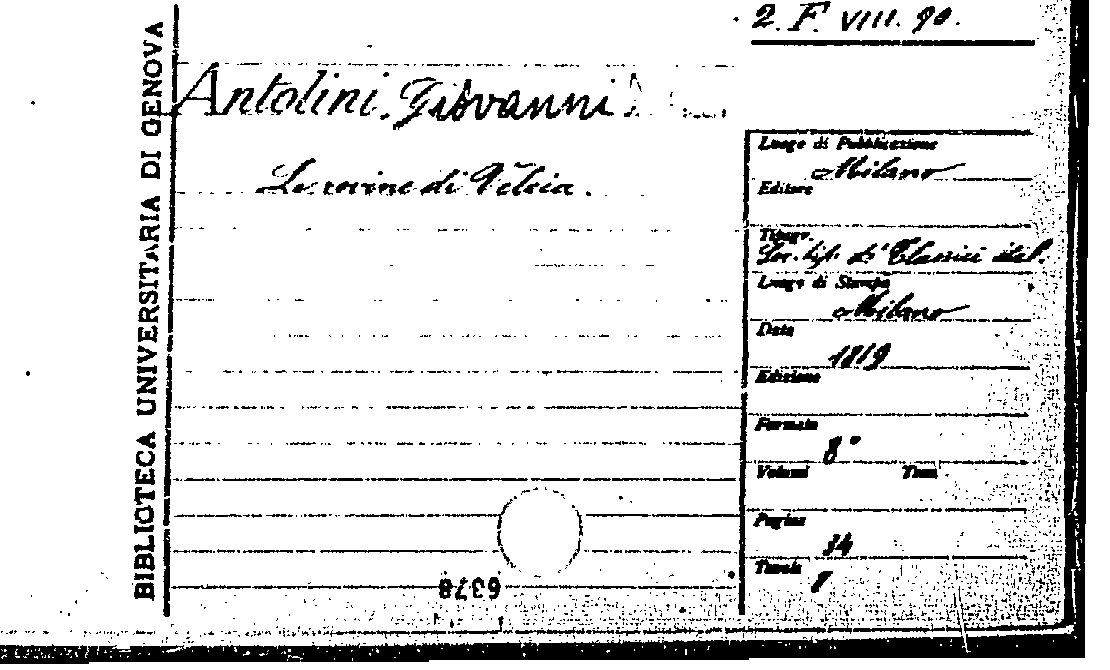 2. F. VIII. 90.
BIBLIOTECA UNIVERSITARIA DI GENOVA
Antolini, Giovanni
Le rovine di Veleia.
Luogo di Pubblicazione
Milano
Editore
Tipogr.
Soc. tip. de' Classici ital.
Luogo di Stampa
Milano
Data
1819
Edizione
Formato
8°
Volumi Tomi
Pagine
34
Tavole
6378